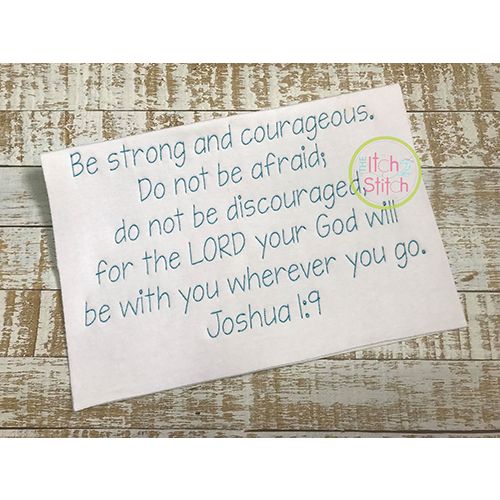 Be strong and courageous.
Do not be afraid;
do not be discouraged,
for the LORD your God will
be with you wherever you go.
Joshua 1:9
THE Itch 2 Stitch